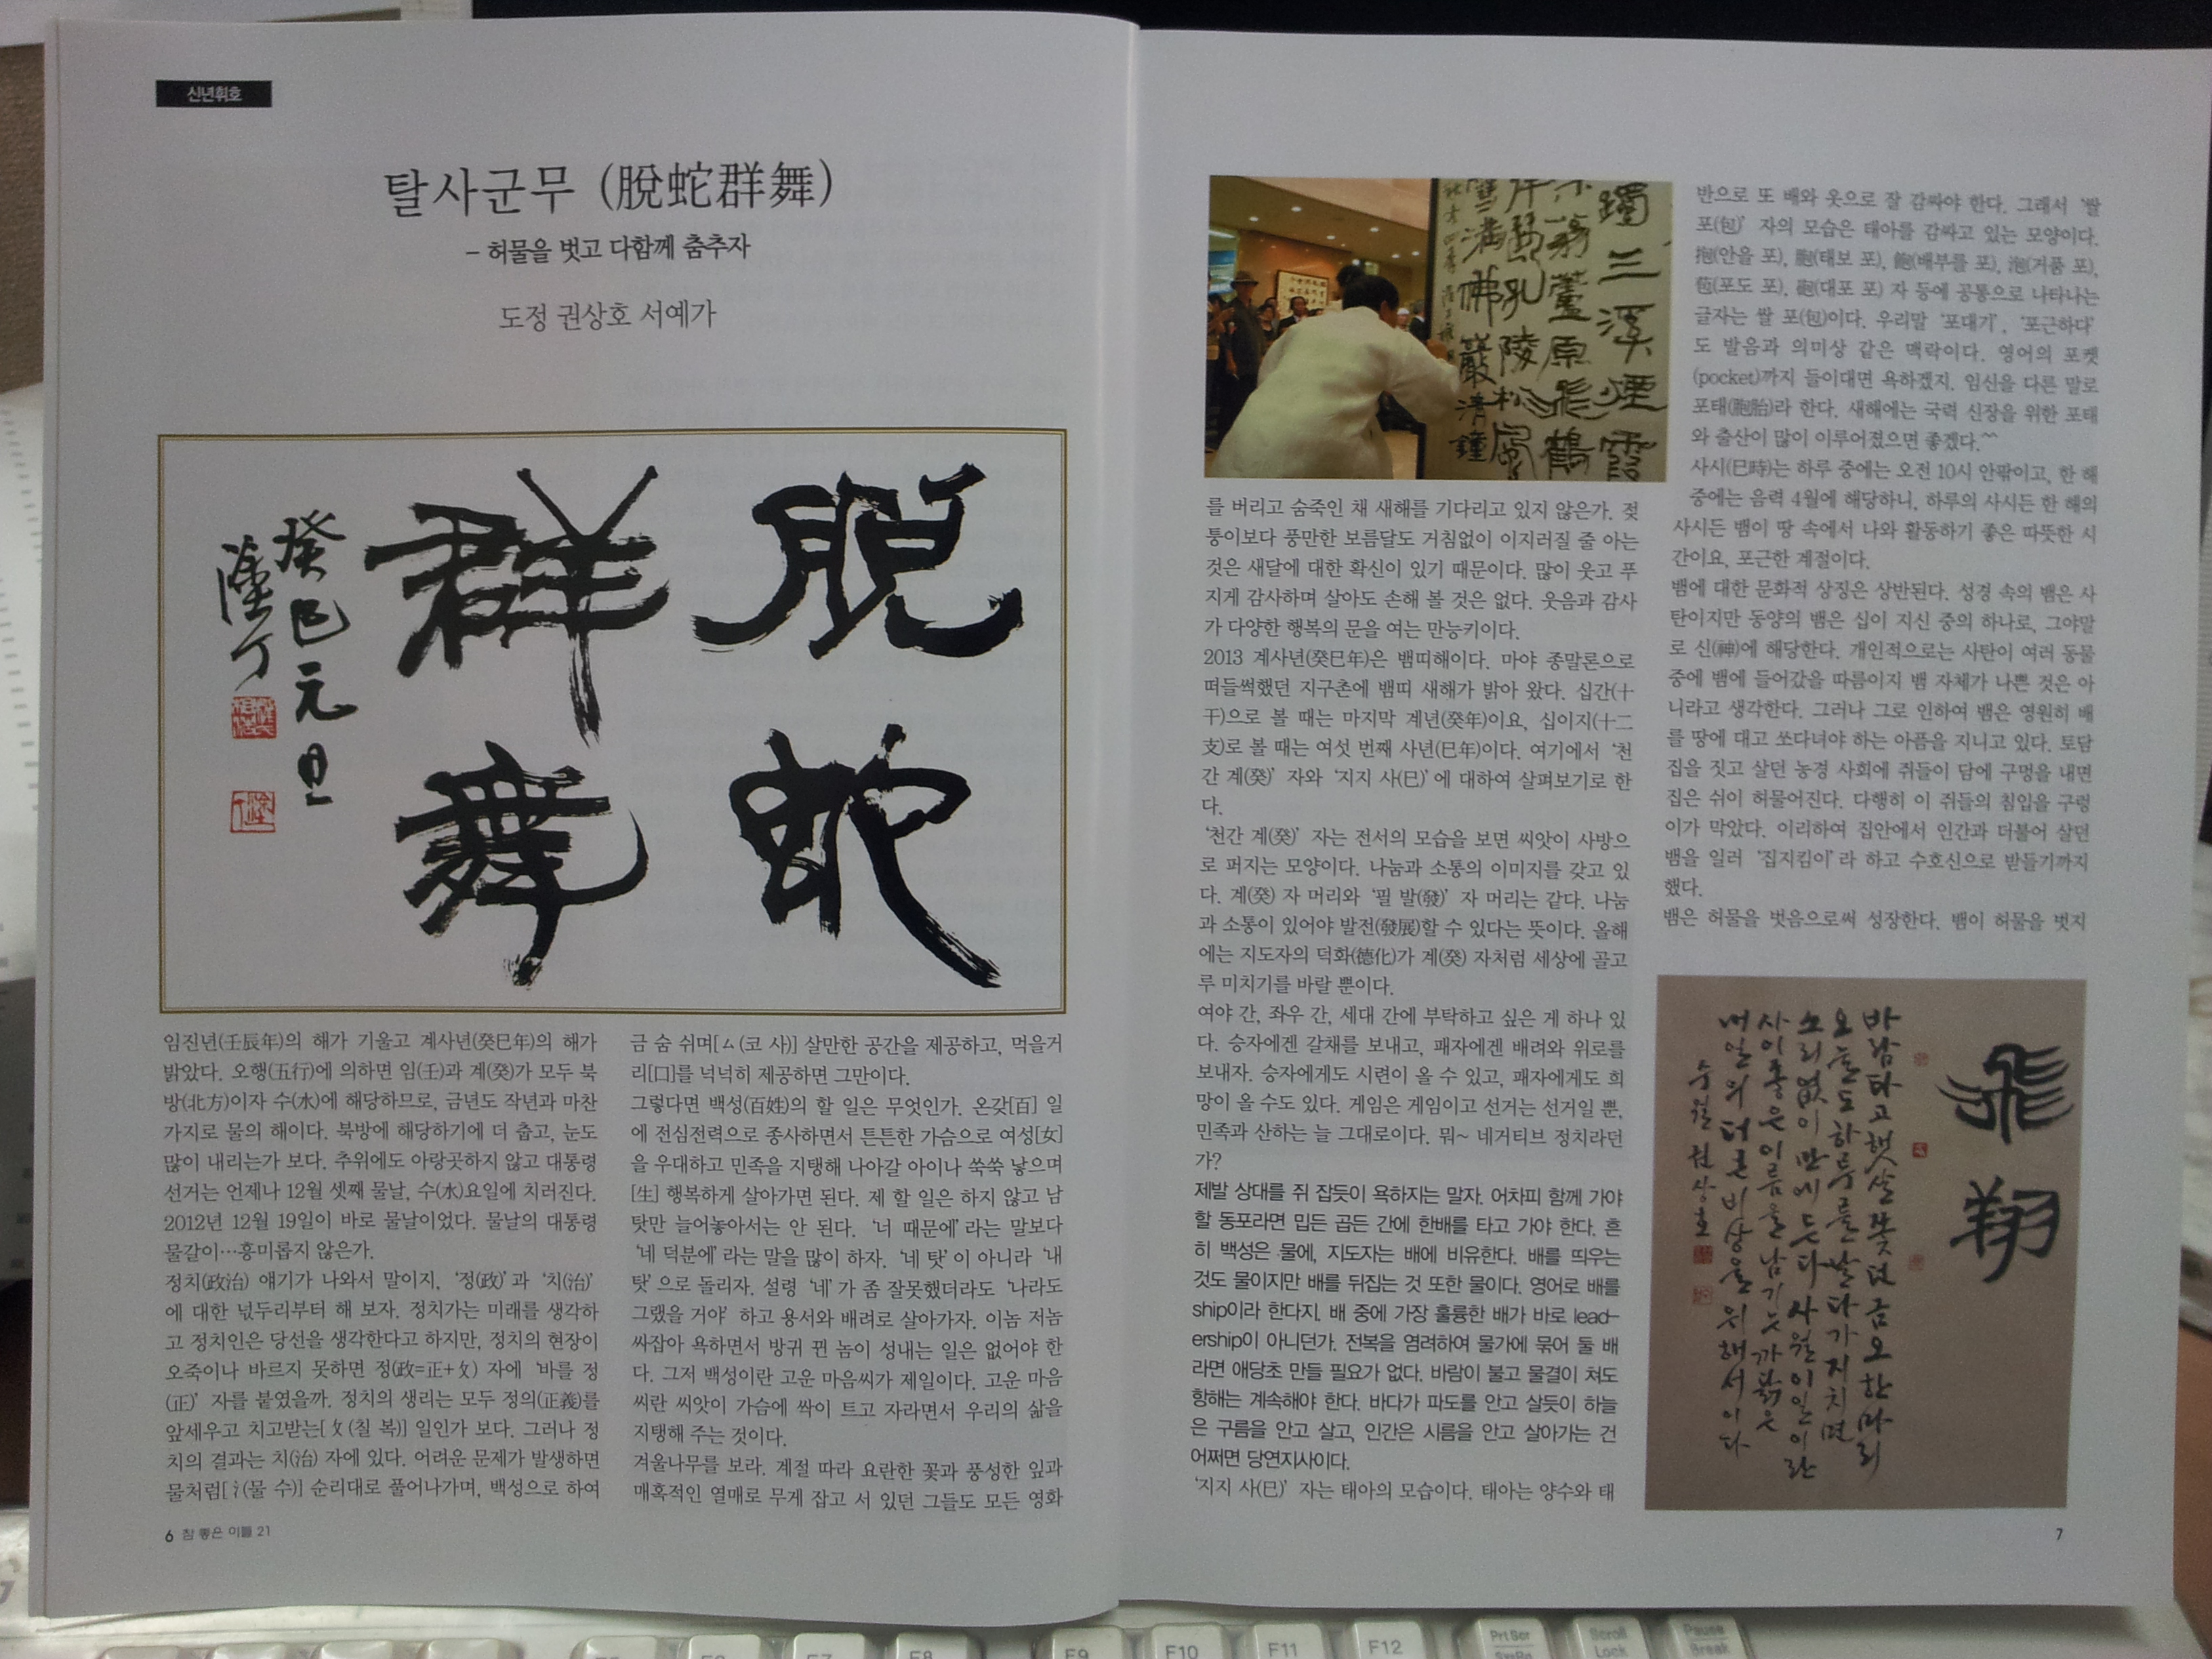 신년휘호
탈사군무 (脫蛇群舞)
- 허물을 벗고 다함께 춤추자
도정 권상호 서예가
脫蛇
群舞
癸巳元旦
임진년(壬辰年)의 해가 기울고 계사년(癸巳年)의 해가
밝았다. 오행(五行)에 의하면 임(壬)과 계(癸)가 모두 북
방(北方)이자 수(水)에 해당하므로, 금년도 작년과 마찬
가지로 물의 해이다. 북방에 해당하기에 더 춥고, 눈도
많이 내리는가 보다. 추위에도 아랑곳하지 않고 대통령
선거는 언제나 12월 셋째 물날, 수(水)요일에 치러진다.
2012년 12월 19일이 바로 물날이었다. 물날의 대통령
물갈이…흥미롭지 않은가.
정치(政治) 얘기가 나와서 말이지, '정(政)'과 '치(治)'
에 대한 넋두리부터 해 보자. 정치가는 미래를 생각하
고 정치인은 당선을 생각한다고 하지만, 정치의 현장이
오죽이나 바르지 못하면 정(政=正+攵) 자에 '바를 정
(正)' 자를 붙였을까. 정치의 생리는 모두 정의(正義)를
앞세우고 치고받는[攵(칠 복)] 일인가 보다. 그러나 정
치의 결과는 치(治) 자에 있다. 어려운 문제가 발생하면
물처럼[氵(물 수)] 순리대로 풀어나가며, 백성으로 하여
금 숨 쉬며[ㅿ(코 사)] 살만한 공간을 제공하고, 먹을거
리[口]를 넉넉히 제공하면 그만이다.
그렇다면 백성(百姓)의 할 일은 무엇인가. 온갖[百] 일
에 전심전력으로 종사하면서 튼튼한 가슴으로 여성[女]
을 우대하고 민족을 지탱해 나아갈 아이나 쑥쑥 낳으며
[生] 행복하게 살아가면 된다. 제 할 일은 하지 않고 남
탓만 늘어놓아서는 안 된다. '너 때문에'라는 말보다
'네 덕분에'라는 말을 많이 하자. '네 탓'이 아니라 '내
탓'으로 돌리자. 설령 '네'가 좀 잘못했더라도 '나라도
그랬을 거야' 하고 용서와 배려로 살아가자. 이놈 저놈
싸잡아 욕하면서 방귀 뀐 놈이 성내는 일은 없어야 한
다. 그저 백성이란 고운 마음씨가 제일이다. 고운 마음
씨란 씨앗이 가슴에 싹이 트고 자라면서 우리의 삶을
지탱해 주는 것이다.
겨울나무를 보라. 계절 따라 요란한 꽃과 풍성한 잎과
매혹적인 열매로 무게 잡고 서 있던 그들도 모든 영화
6 참 좋은 이들 21
를 버리고 숨죽인 채 새해를 기다리고 있지 않은가. 젖
퉁이보다 풍만한 보름달도 거침없이 이지러질 줄 아는
것은 새달에 대한 확신이 있기 때문이다. 많이 웃고 푸
지게 감사하며 살아도 손해 볼 것은 없다. 웃음과 감사
가 다양한 행복의 문을 여는 만능키이다.
2013 계사년(癸巳年)은 뱀띠해이다. 마야 종말론으로
떠들썩했던 지구촌에 뱀띠 새해가 밝아 왔다. 십간(十
干)으로 볼 때는 마지막 계년(癸年)이요, 십이지(十二
支)로 볼 때는 여섯 번째 사년(巳年)이다. 여기에서 '천
간 계(癸)' 자와 '지지 사(巳)'에 대하여 살펴보기로 한
다.
'천간 계(癸)' 자는 전서의 모습을 보면 씨앗이 사방으
로 퍼지는 모양이다. 나눔과 소통의 이미지를 갖고 있
다. 계(癸) 자 머리와 '필 발(發)' 자 머리는 같다. 나눔
과 소통이 있어야 발전(發展)할 수 있다는 뜻이다. 올해
에는 지도자의 덕화(德化)가 계(癸) 자처럼 세상에 골고
루 미치기를 바랄 뿐이다.
여야 간, 좌우 간, 세대 간에 부탁하고 싶은 게 하나 있
다. 승자에겐 갈채를 보내고, 패자에겐 배려와 위로를
보내자. 승자에게도 시련이 올 수 있고, 패자에게도 희
망이 올 수도 있다. 게임은 게임이고 선거는 선거일 뿐,
민족과 산하는 늘 그대로이다. 뭐~ 네거티브 정치라던
가?
제발 상대를 쥐 잡듯이 욕하지는 말자. 어차피 함께 가야
할 동포라면 밉든 곱든 간에 한배를 타고 가야 한다. 흔
히 백성은 물에, 지도자는 배에 비유한다. 배를 띄우는
것도 물이지만 배를 뒤집는 것 또한 물이다. 영어로 배를
ship이라 한다지. 배 중에 가장 훌륭한 배가 바로 lead-
ership이 아니던가. 전복을 염려하여 물가에 묶어 둘 배
라면 애당초 만들 필요가 없다. 바람이 불고 물결이 쳐도
항해는 계속해야 한다. 바다가 파도를 안고 살듯이 하늘
은 구름을 안고 살고, 인간은 시름을 안고 살아가는 건
어쩌면 당연지사이다.
'지지 사(巳)' 자는 태아의 모습이다. 태아는 양수와 태
반으로 또 배와 옷으로 잘 감싸야 한다. 그래서 '쌀
포(包)' 자의 모습은 태아를 감싸고 있는 모양이다.
抱(안을 포), 胞(태보 포), 飽(배부를 포), 泡(거품 포),
苞(포도 포), 砲(대포 포) 자 등에 공통으로 나타나는
글자는 쌀 포(包)이다. 우리말 '포대기', '포근하다'
도 발음과 의미상 같은 맥락이다. 영어의 포켓
(pocket)까지 들이대면 욕하겠지. 임신을 다른 말로
포태(胞胎)라 한다. 새해에는 국력 신장을 위한 포태
와 출산이 많이 이루어졌으면 좋겠다.^^
사시(巳時)는 하루 중에는 오전 10시 안팎이고, 한 해
중에는 음력 4월에 해당하니, 하루의 사시든 한 해의
사시든 뱀이 땅 속에서 나와 활동하기 좋은 따뜻한 시
간이요, 포근한 계절이다.
뱀에 대한 문화적 상징은 상반된다. 성경 속의 뱀은 사
탄이지만 동양의 뱀은 십이 지신 중의 하나로, 그야말
로 신(神)에 해당한다. 개인적으로는 사탄이 여러 동물
중에 뱀에 들어갔을 따름이지 뱀 자체가 나쁜 것은 아
니라고 생각한다. 그러나 그로 인하여 뱀은 영원히 배
를 땅에 대고 쏘다녀야 하는 아픔을 지니고 있다. 토담
집을 짓고 살던 농경 사회에 쥐들이 담에 구멍을 내면
집은 쉬이 허물어진다. 다행히 이 쥐들의 침입을 구렁
이가 막았다. 이리하여 집안에서 인간과 더불어 살던
뱀을 일러 '집지킴이'라 하고 수호신으로 받들기까지
했다.
뱀은 허물을 벗음으로써 성장한다. 뱀이 허물을 벗지
飛翔
바람타고 햇살쫓던 금오 한마리
오늘도 하루를 날다가 지치면
소리없이 만에 든다 사월이일이란
사이좋은 이름을 남기는 까닭은
내일의 더 큰 비상을 위해서이다
수월 권상호
7
F8
F9
F10
F11
F12
PrtScr
SysRq
Scroll
Lock
Pause
Break